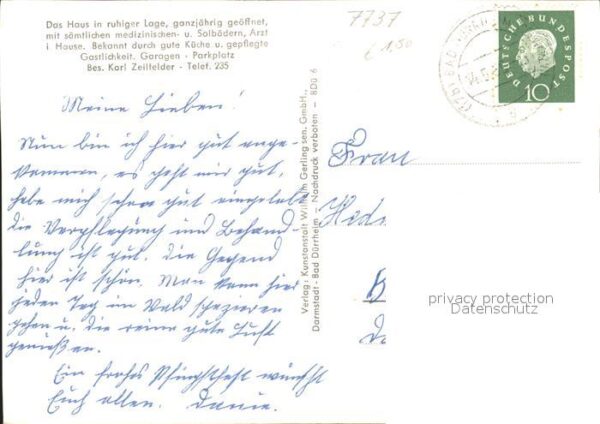 Das Haus in ruhiger Lage, ganzjährig geöffnet,
mit sämtlichen medizinischen- u. Solbädern, Arzt
i. Hause. Bekannt durch gute Küche u. gepflegte
Gastlichkeit. Garagen - Parkplatz
Bes. Karl Zeilfelder - Telef. 235
Meine Lieben!
Nun bin ich hier gut ange-
kommen, es geht mir gut,
habe mich schon gut eingelebt
die Verpflegung und Behand
lung ist gut. die Gegend
hier ist schön. Man kann hier
jeden Tag im Wald spazieren
gehen u. die reine gute Luft
genießen.
Ein frohes Pfingstfest wünscht
Euch allen.
Verlag: Kunstanstalt Wilhelm Gerling sen. GmbH.,
Darmstadt - Bad Dürrheim - Nachdruck verboten - BDü 6
7737
€ 1,50
DEUTSCHE BUNDESPOST
10
Frau
privacy protection
Datenschutz